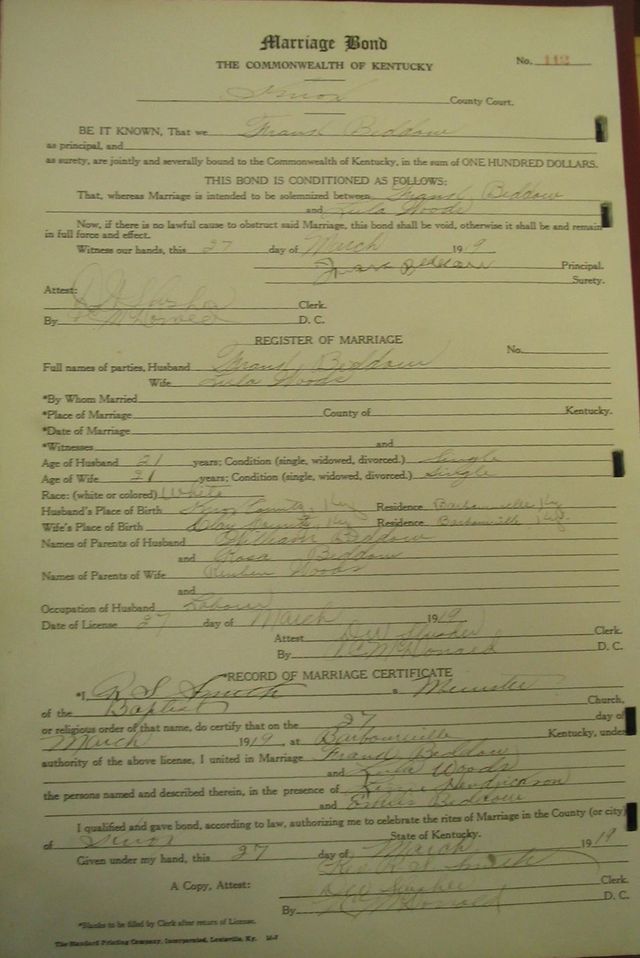 Marriage Bond
THE COMMONWEALTH OF KENTUCKY
No. 112
Knox County Court.
BE IT KNOWN, That we Frank Beddow
as principal, and
as surety, are jointly and severally bound to the Commonwealth of Kentucky, in the sum of ONE HUNDRED DOLLARS.
THIS BOND IS CONDITIONED AS FOLLOWS:
That, whereas Marriage is intended to be solemnized between Frank Beddow
and Lula Woods
Now, if there is no lawful cause to obstruct said Marriage, this bond shall be void, otherwise it shall be and remain
in full force and effect.
Witness our hands, this 27 day of March 1919
Frank Beddow Principal.
Surety.
Attest:
Clerk.
By McDonald D. C.
REGISTER OF MARRIAGE
No.
Full names of parties, Husband Frank Beddow
Wife Lula Woods
*By Whom Married
*Place of Marriage County of Kentucky.
*Date of Marriage
*Witnesses and
Age of Husband 21 years; Condition (single, widowed, divorced.) Single
Age of Wife 21 years; Condition (single, widowed, divorced.) Single
Race: (white or colored) White
Husband's Place of Birth Knox County, Ky Residence Barbourville, Ky
Wife's Place of Birth Clay County, Ky Residence Barbourville, Ky.
Names of Parents of Husband William Beddow
and Rosa Beddow
Names of Parents of Wife Reuben Woods
and
Occupation of Husband Labour
Date of License 27 day of March 1919
Attest Clerk.
By McDonald D. C.
*RECORD OF MARRIAGE CERTIFICATE
*I, R. S. Smith a Minister
of the Baptist Church,
or religious order of that name, do certify that on the 27 day of
March 1919, at Barbourville Kentucky, under
authority of the above license, I united in Marriage Frank Beddow
and Lula Woods
the persons named and described therein, in the presence of Hendrickson
and Beddow
I qualified and gave bond, according to law, authorizing me to celebrate the rites of Marriage in the County (or city)
of Knox State of Kentucky.
Given under my hand, this 27 day of March 1919
Rev R. S. Smith
A Copy, Attest: Clerk.
By McDonald D. C.
*Blanks to be filled by Clerk after return of License.
The Standard Printing Company, Incorporated, Louisville, Ky.